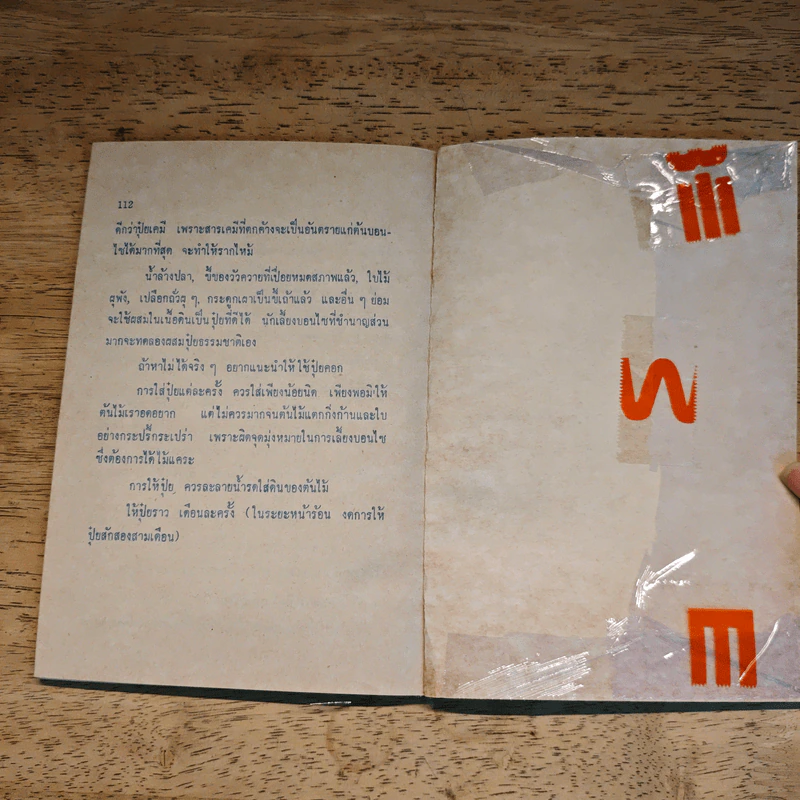 112
ดีกว่าปุ๋ยเคมี เพราะสารเคมีที่ตกค้างจะเป็นอันตรายแก่ต้นบอน-
ไซได้มากที่สุด จะทำให้รากไหม้
น้ำล้างปลา, ขี้ของวัวควายที่เปื่อยหมดสภาพแล้ว, ใบไม้
ผุพัง, เปลือกถั่วผุ ๆ, กระดูกเผาเป็นขี้เถ้าแล้ว และอื่น ๆ ย่อม
จะใช้ผสมในเนื้อดินเป็นปุ๋ยที่ดีได้ นักเลี้ยงบอนไซที่ชำนาญส่วน
มากจะทดลองผสมปุ๋ยธรรมชาติเอง
ถ้าหาไม่ได้จริง ๆ อยากแนะนำให้ใช้ปุ๋ยคอก
การใส่ปุ๋ยแต่ละครั้ง ควรใส่เพียงน้อยนิด เพียงพอมิให้
ต้นไม้เราอดอยาก แต่ไม่ควรมากจนต้นไม้แตกกิ่งก้านและใบ
อย่างกระปรี้กระเปร่า เพราะผิดจุดมุ่งหมายในการเลี้ยงบอนไซ
ซึ่งต้องการได้ไม้แคระ
การให้ปุ๋ย ควรละลายน้ำรดใส่ดินของต้นไม้
ให้ปุ๋ยราว เดือนละครั้ง (ในระยะหน้าร้อน งดการให้
ปุ๋ยสักสองสามเดือน)